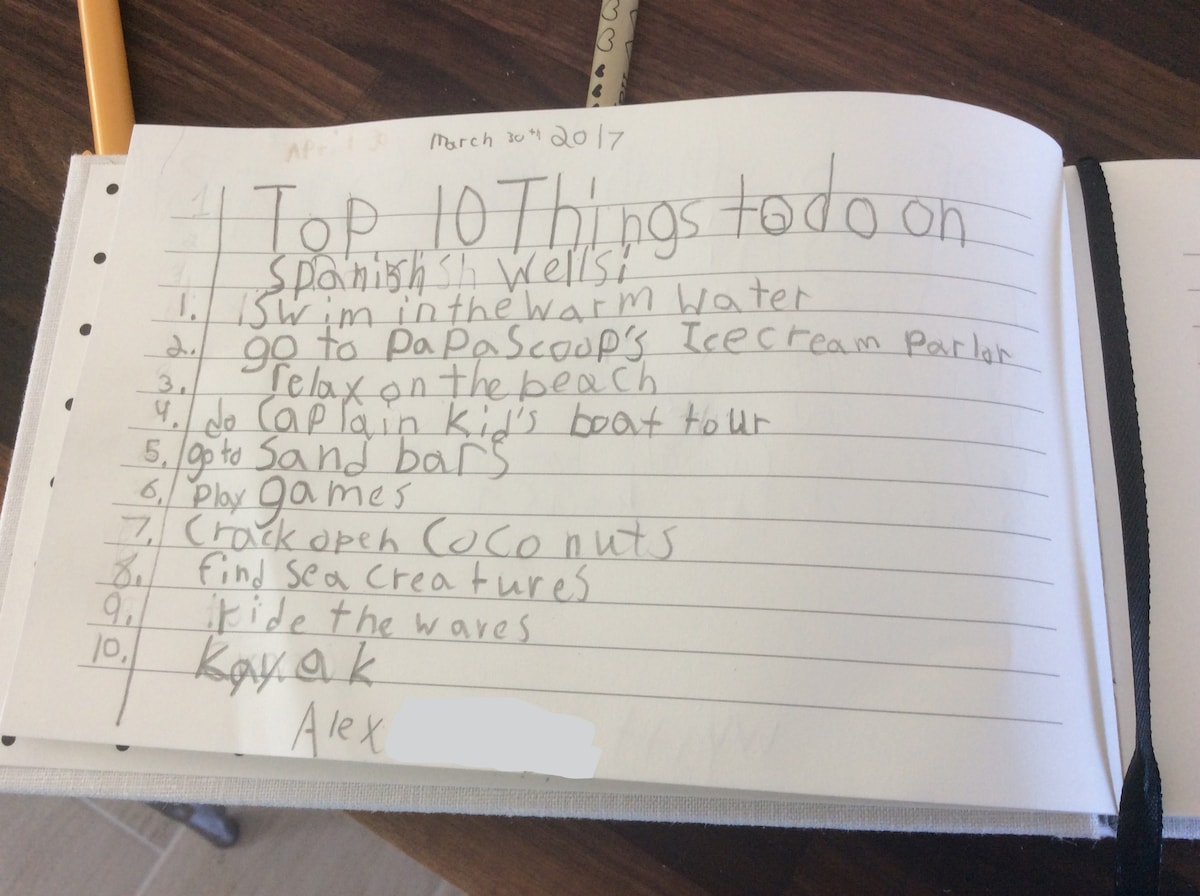 March 30th 2017
Top 10 Things to do on
Spanish Wells:
1. Swim in the warm water
2. go to PaPa Scoop's Ice cream Parlor
3. relax on the beach
4. do Captain Kid's boat tour
5. go to Sand bars
6. Play games
7. Crack open Coconuts
8. find sea creatures
9. ride the waves
10. Kayak
Alex